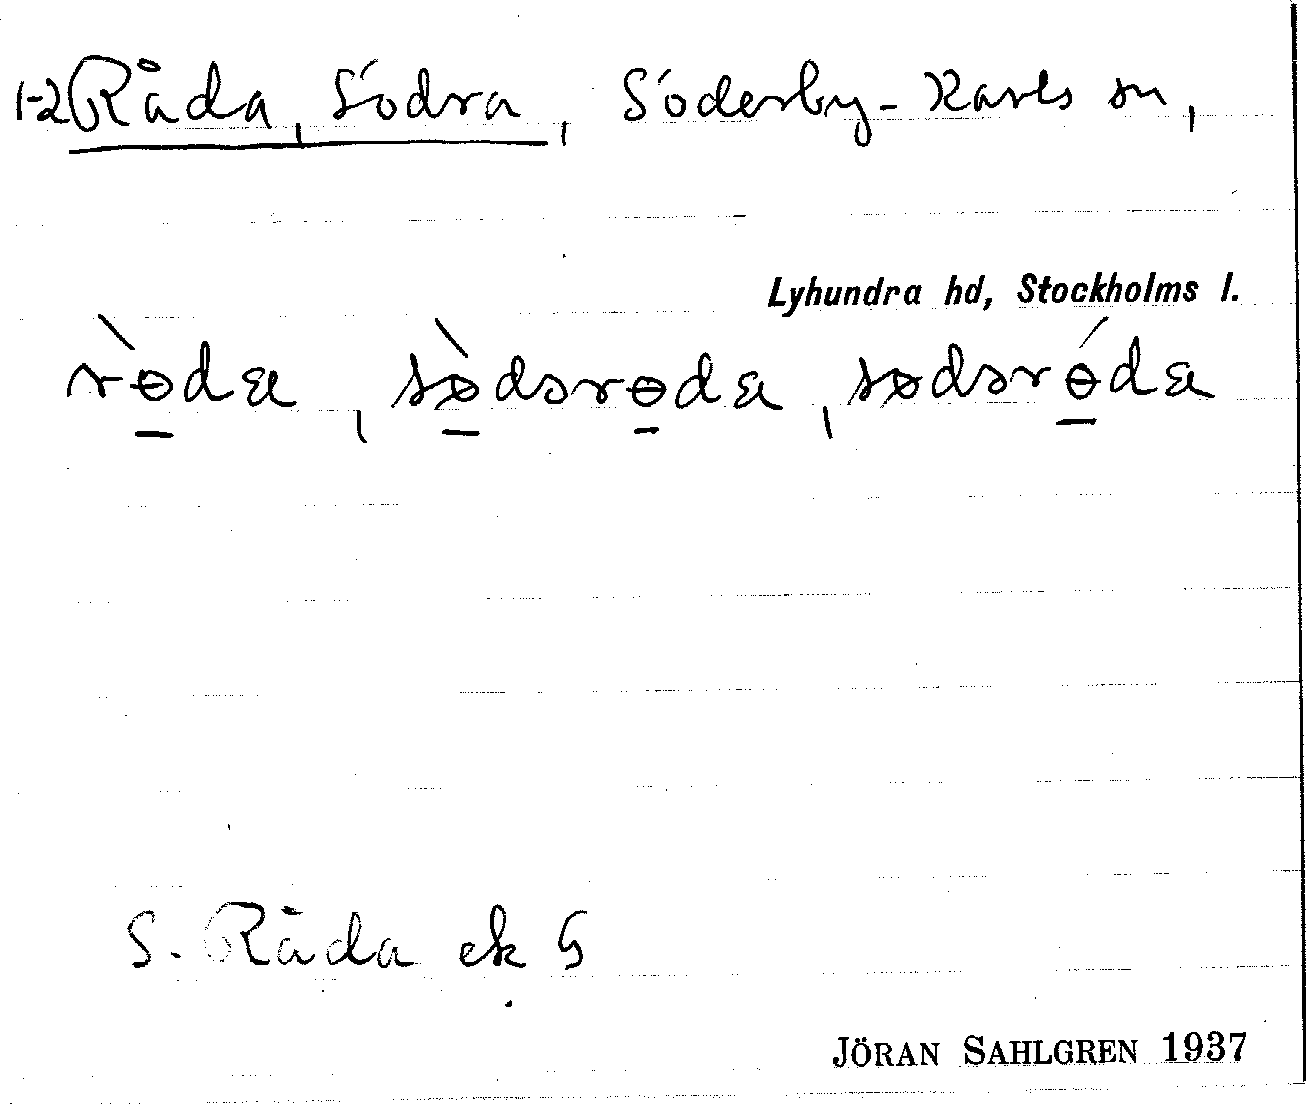 1-2 Råda, Södra, Söderby-Karls sn,
Lyhundra hd, Stockholms l.
rɵ̀da, sø̀dərɵda, sødərɵ́da
S. Råda ek 5
JÖRAN SAHLGREN 1937